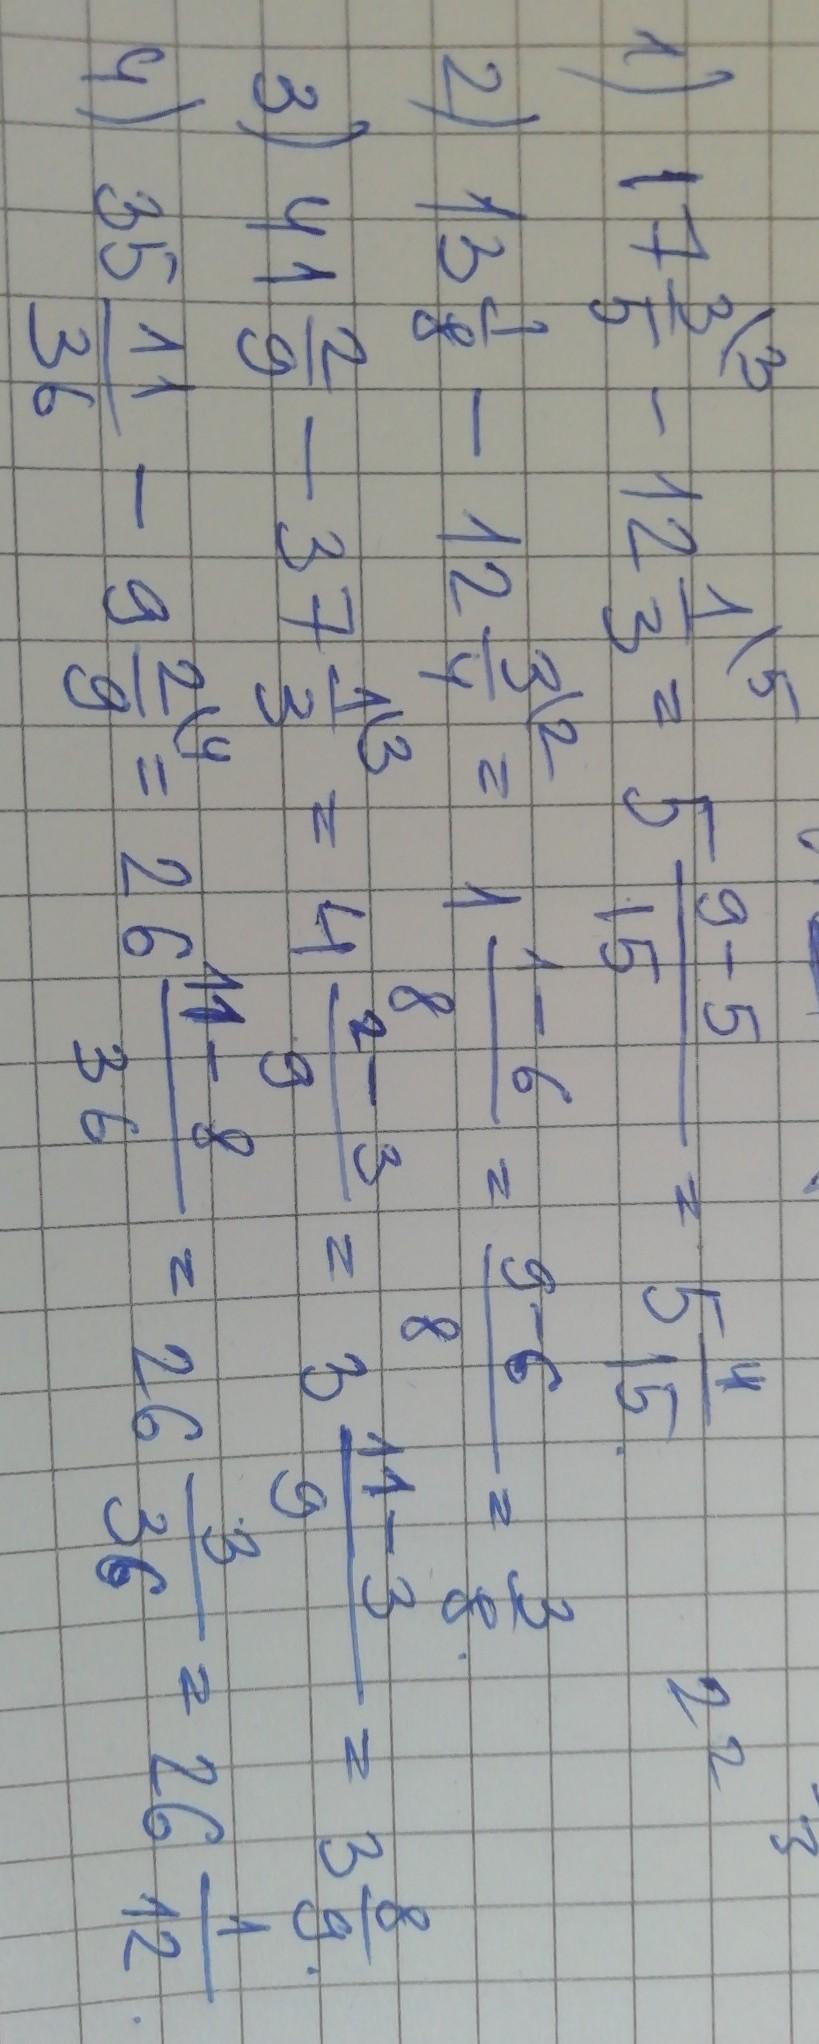 22
1) 17 3/5 \3 - 12 1/3 \5 = 5 (9-5)/15 = 5 4/15.
2) 13 1/8 - 12 3/4 \2 = 1 (1-6)/8 = (9-6)/8 = 3/8.
3) 41 2/9 - 37 1/3 \3 = 4 (2-3)/9 = 3 (11-3)/9 = 3 8/9.
4) 35 11/36 - 9 2/9 \4 = 26 (11-8)/36 = 26 3/36 = 26 1/12.